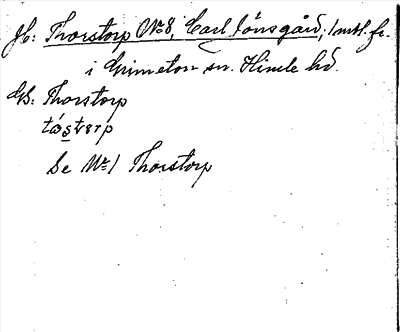 Jb: Thorstorp No 8, Carl Jönsgård, 1 mtl. fr.
i Grimeton sn. Himle hd.
GB: Thorstorp
tåstɘrp
Se No 1 Thorstorp